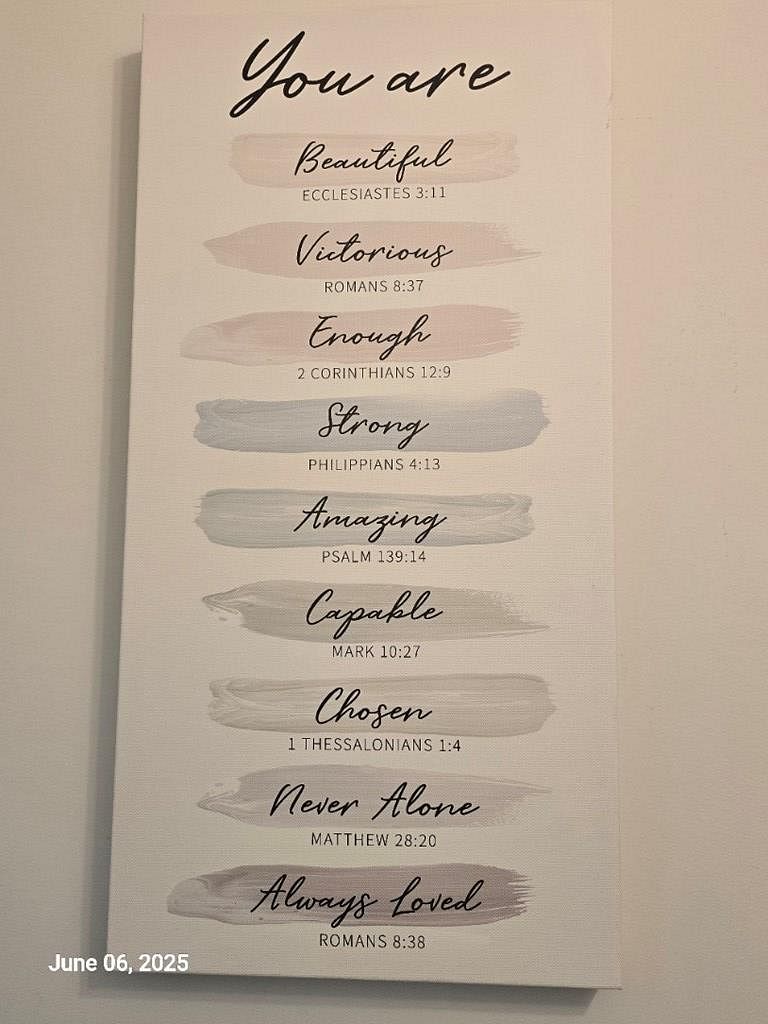 You are
Beautiful
ECCLESIASTES 3:11
Victorious
ROMANS 8:37
Enough
2 CORINTHIANS 12:9
Strong
PHILIPPIANS 4:13
Amazing
PSALM 139:14
Capable
MARK 10:27
Chosen
1 THESSALONIANS 1:4
Never Alone
MATTHEW 28:20
Always Loved
ROMANS 8:38
June 06, 2025